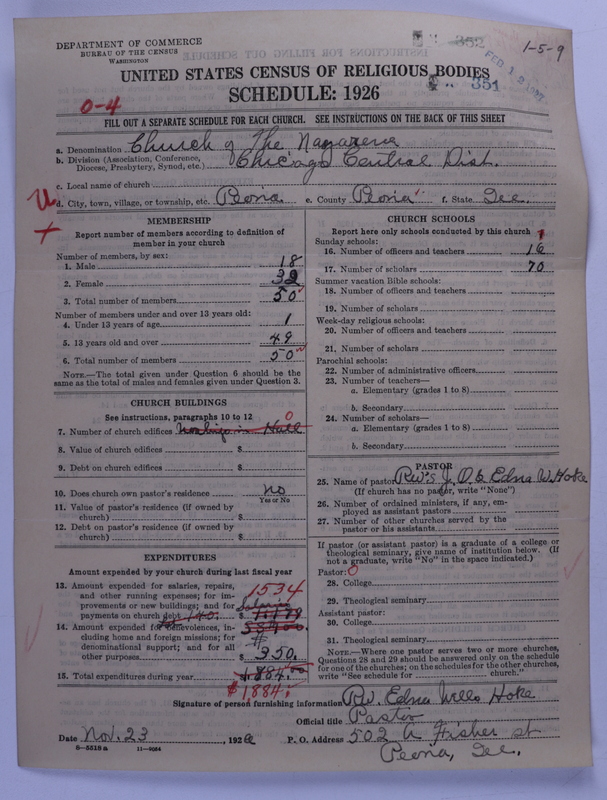 DEPARTMENT OF COMMERCE
BUREAU OF THE CENSUS
WASHINGTON
352
1-5-9
FEB 12 1927
UNITED STATES CENSUS OF RELIGIOUS BODIES
351
SCHEDULE: 1926
0-4
FILL OUT A SEPARATE SCHEDULE FOR EACH CHURCH. SEE INSTRUCTIONS ON THE BACK OF THIS SHEET
a. Denomination Church of The Nazarene
b. Division (Association, Conference, Diocese, Presbytery, Synod, etc.) Chicago Central Dist.
c. Local name of church
d. City, town, village, or township, etc. Peoria e. County Peoria f. State Ill.
MEMBERSHIP
Report number of members according to definition of
member in your church
Number of members, by sex:
1. Male 18
2. Female 32
3. Total number of members 50
Number of members under and over 13 years old:
4. Under 13 years of age 1
5. 13 years old and over 49
6. Total number of members 50
NOTE.—The total given under Question 6 should be
the same as the total of males and females given under Question 3.
CHURCH BUILDINGS
See instructions, paragraphs 10 to 12
0
7. Number of church edifices Hall
8. Value of church edifices $
9. Debt on church edifices $
10. Does church own pastor's residence no
Yes or No
11. Value of pastor's residence (if owned by
church) $
12. Debt on pastor's residence (if owned by
church) $
EXPENDITURES
Amount expended by your church during last fiscal year
13. Amount expended for salaries, repairs,
and other running expenses; for im-
provements or new buildings; and for
payments on church debt $
1534
14. Amount expended for benevolences, in-
cluding home and foreign missions; for
denominational support; and for all
other purposes $ 350.
15. Total expenditures during year $1884.00
$1884.
CHURCH SCHOOLS
Report here only schools conducted by this church
Sunday schools:
16. Number of officers and teachers 16
17. Number of scholars 70
Summer vacation Bible schools:
18. Number of officers and teachers
19. Number of scholars
Week-day religious schools:
20. Number of officers and teachers
21. Number of scholars
Parochial schools:
22. Number of administrative officers
23. Number of teachers—
a. Elementary (grades 1 to 8)
b. Secondary
24. Number of scholars—
a. Elementary (grades 1 to 8)
b. Secondary
PASTOR
25. Name of pastor Rev's J. O. & Edna W. Hoke
(If church has no pastor, write "None")
26. Number of ordained ministers, if any, em-
ployed as assistant pastors
27. Number of other churches served by the
pastor or his assistants
If pastor (or assistant pastor) is a graduate of a college or
theological seminary, give name of institution below. (If
not a graduate, write "No" in the space indicated.)
Pastor: 0
28. College
29. Theological seminary
Assistant pastor:
30. College
31. Theological seminary
NOTE.—Where one pastor serves two or more churches,
Questions 28 and 29 should be answered only on the schedule
for one of the churches; on the schedules for the other churches,
write "See schedule for church."
Signature of person furnishing information Rev. Edna Wells Hoke
Official title Pastor
Date Nov. 23, 1926 P. O. Address 502 A Fisher st
Peoria, Ill.
8-5518a 11-9064